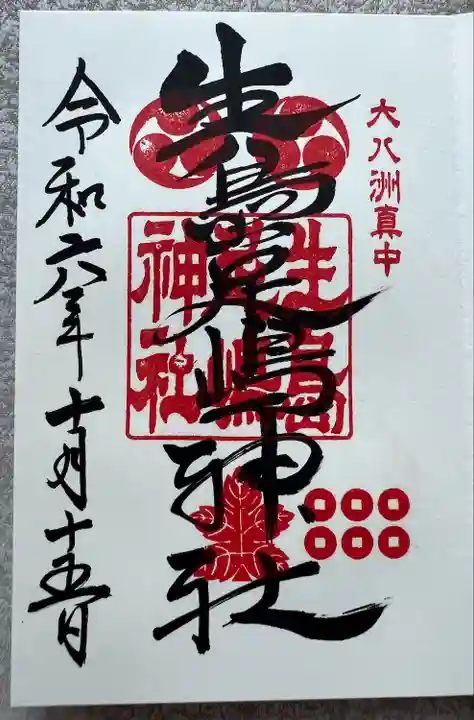 大八洲真中
生島足嶋神社
生島
足嶋
神社
令和六年十月十五日